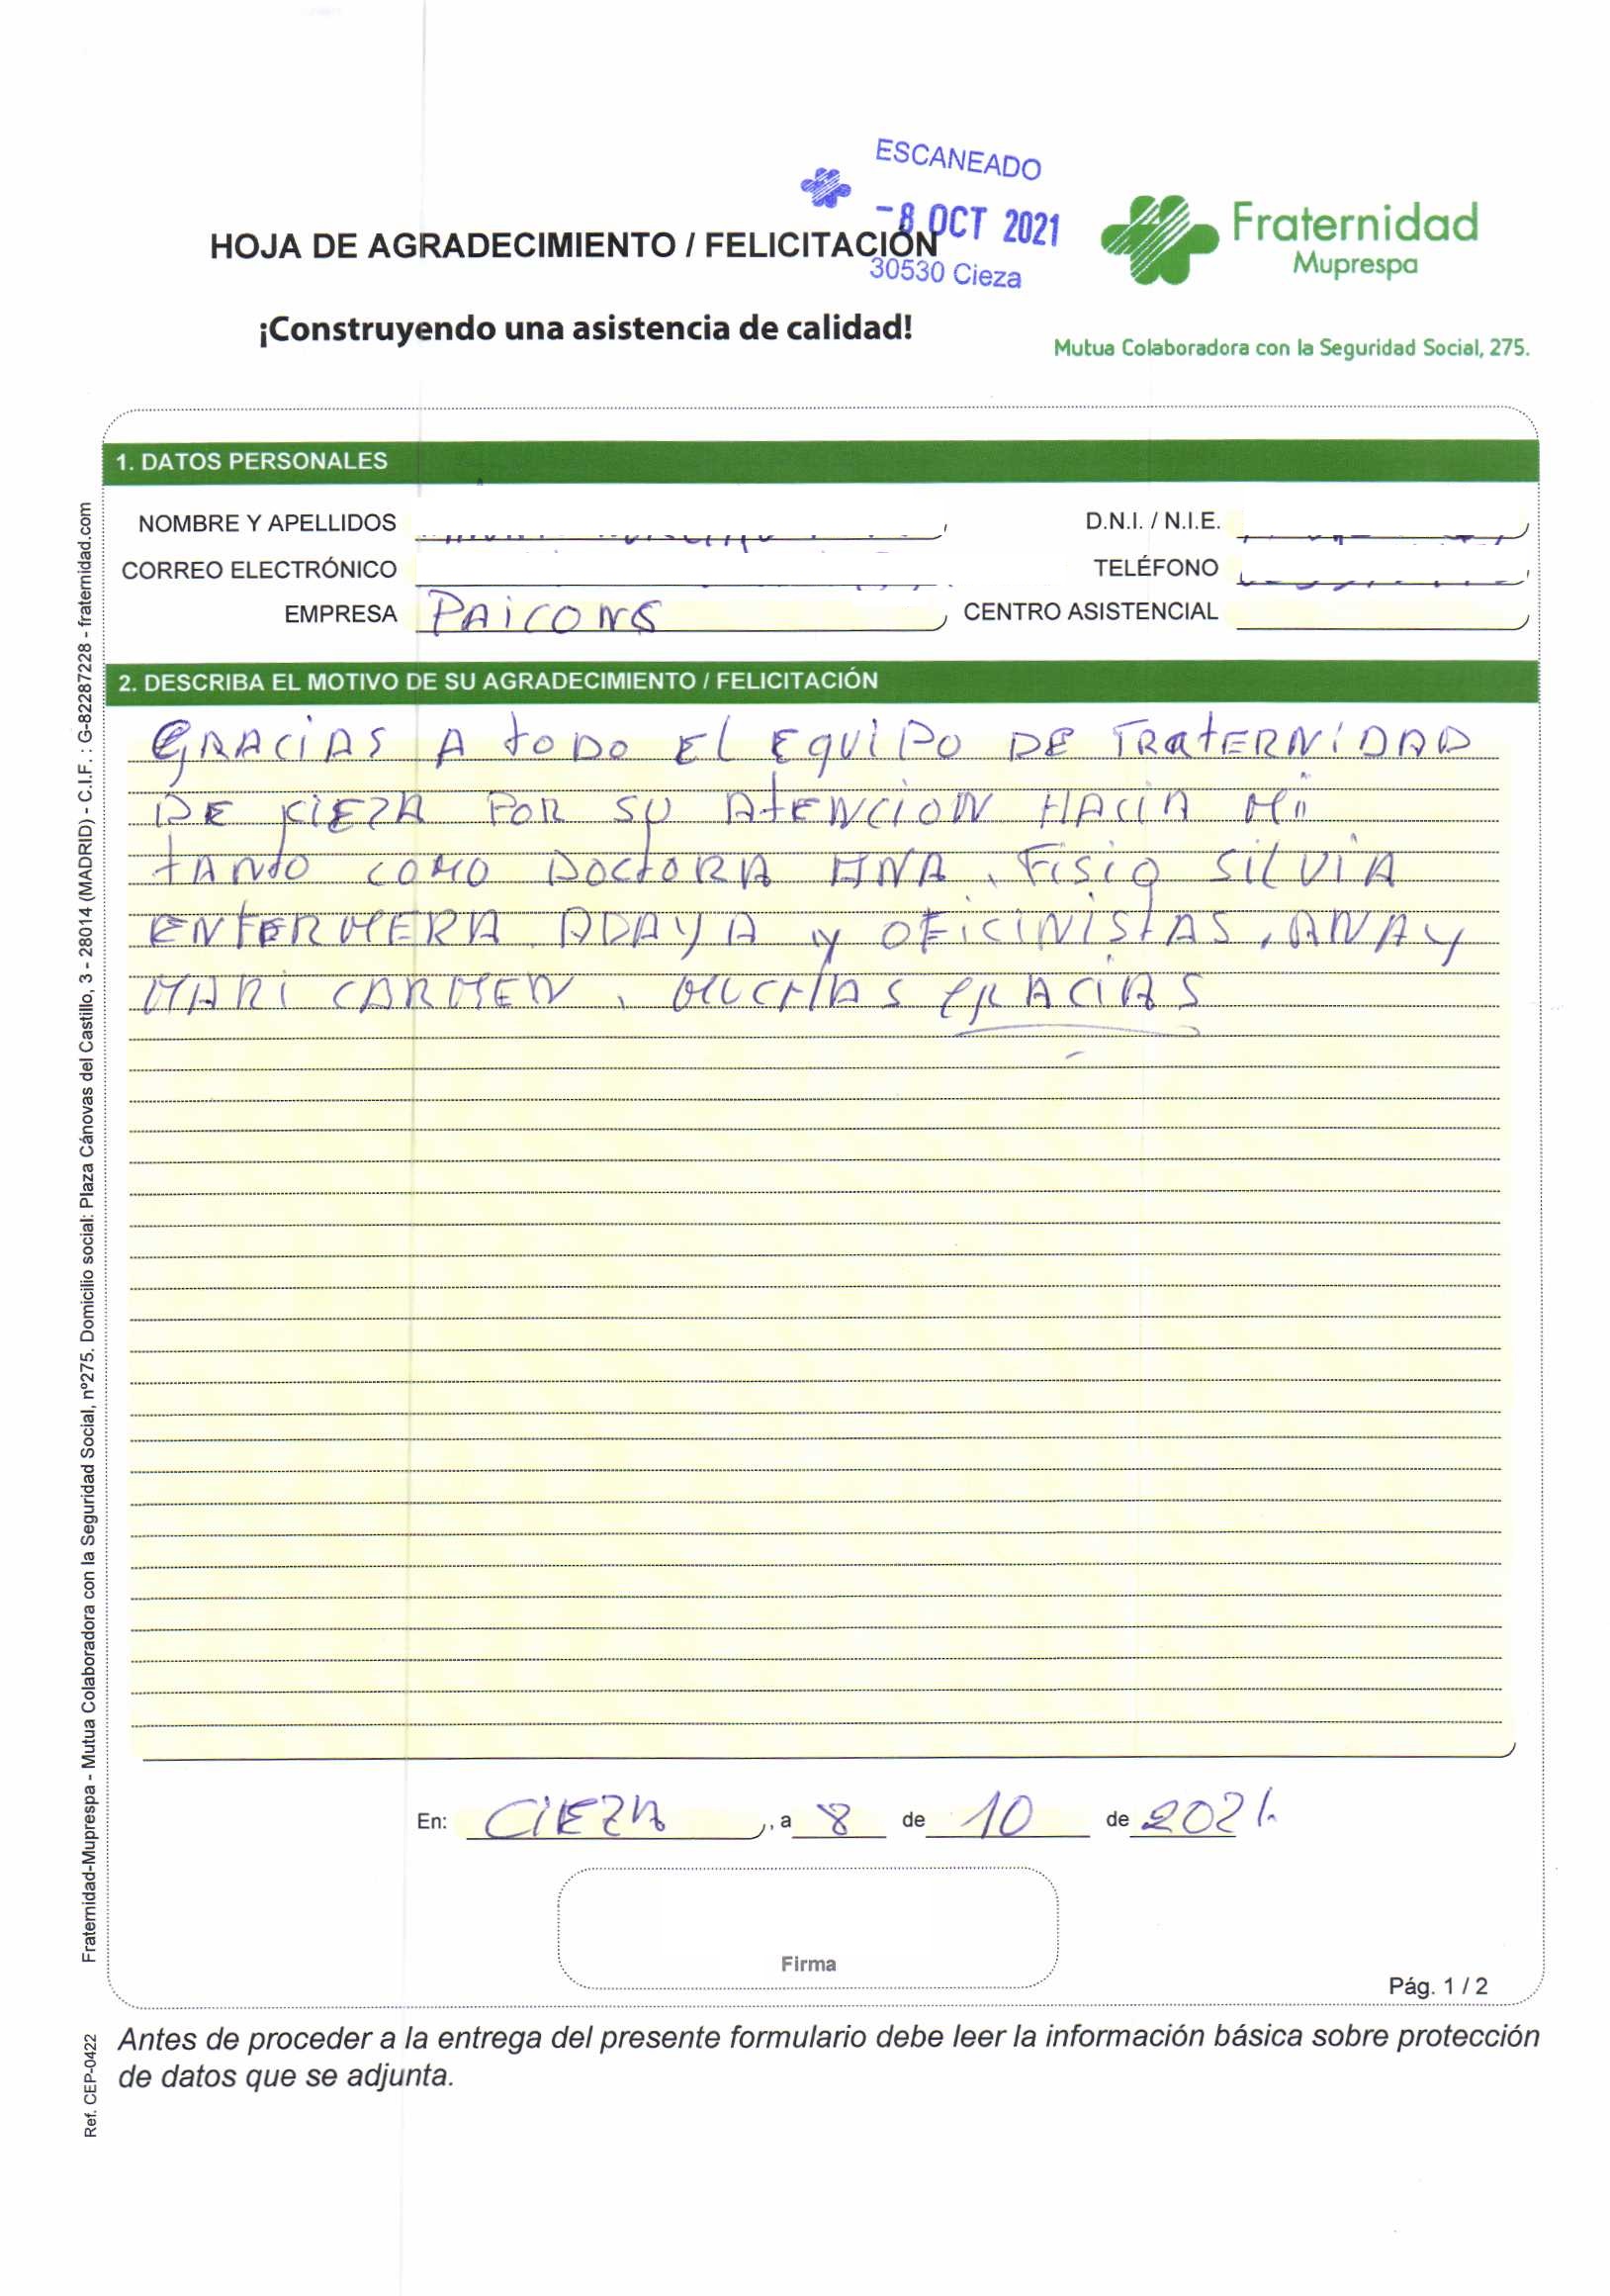 ESCANEADO
-8 OCT 2021
30530 Cieza
HOJA DE AGRADECIMIENTO / FELICITACIÓN
¡Construyendo una asistencia de calidad!
Fraternidad
Muprespa
Mutua Colaboradora con la Seguridad Social, 275.
1. DATOS PERSONALES
NOMBRE Y APELLIDOS
D.N.I. / N.I.E.
CORREO ELECTRÓNICO
TELÉFONO
EMPRESA PAiCONS CENTRO ASISTENCIAL
2. DESCRIBA EL MOTIVO DE SU AGRADECIMIENTO / FELICITACIÓN
GRACIAS A todo EL EQUIPO DE FRatERNIDAD
DE CIEZA POR SU AtENCION HACIA Mi
tANto COMO DOCtORA ANA, FiSiO SILVIA
ENFERMERA ADAYA y OFICINIStAS, ANA y
MARI CARMEN, MUCHAS GRACIAS
En: CIEZA, a 8 de 10 de 2021.
Firma
Pág. 1 / 2
Antes de proceder a la entrega del presente formulario debe leer la información básica sobre protección
de datos que se adjunta.
Fraternidad-Muprespa - Mutua Colaboradora con la Seguridad Social, nº275. Domicilio social: Plaza Cánovas del Castillo, 3 - 28014 (MADRID) - C.I.F. : G-82287228 - fraternidad.com
Ref. CEP-0422